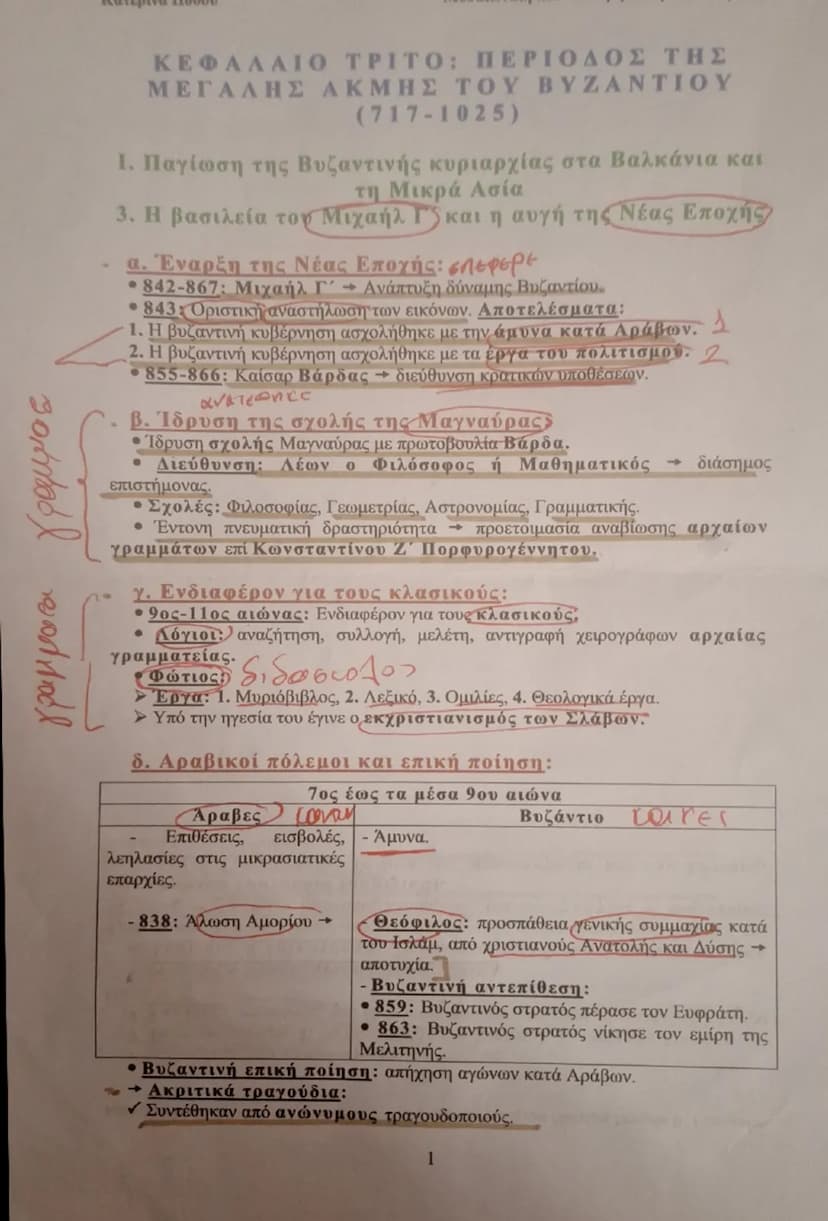 ΚΕΦΑΛΑΙΟ ΤΡΙΤΟ: ΠΕΡΙΟΔΟΣ ΤΗΣ
ΜΕΓΑΛΗΣ ΑΚΜΗΣ ΤΟΥ ΒΥΖΑΝΤΙΟΥ
(717-1025)
1. Παγίωση της Βυζαντινής κυριαρχίας στα Βαλκάνια και
τη Μικρά Ασία
3. Η βασιλεία του Μιχαήλ Γ΄ και η αυγή της Νέας Εποχής
α. Έναρξη της Νέας Εποχής:
• 842-867: Μιχαήλ Γ΄ → Ανάπτυξη δύναμης Βυζαντίου.
• 843: Οριστική αναστήλωση των εικόνων. Αποτελέσματα:
1. Η βυζαντινή κυβέρνηση ασχολήθηκε με την άμυνα κατά Αράβων. 1
2. Η βυζαντινή κυβέρνηση ασχολήθηκε με τα έργα του πολιτισμού. 2
• 855-866: Καίσαρ Βάρδας → διεύθυνση κρατικών υποθέσεων.
β. Ίδρυση της σχολής της Μαγναύρας:
• Ίδρυση σχολής Μαγναύρας με πρωτοβουλία Βάρδα.
• Διεύθυνση: Λέων ο Φιλόσοφος ή Μαθηματικός → διάσημος
επιστήμονας.
• Σχολές: Φιλοσοφίας, Γεωμετρίας, Αστρονομίας, Γραμματικής.
• Έντονη πνευματική δραστηριότητα → προετοιμασία αναβίωσης αρχαίων
γραμμάτων επί Κωνσταντίνου Ζ΄ Πορφυρογέννητου.
γ. Ενδιαφέρον για τους κλασικούς:
• 9ος-11ος αιώνας: Ενδιαφέρον για τους κλασικούς.
• Λόγιοι: αναζήτηση, συλλογή, μελέτη, αντιγραφή χειρογράφων αρχαίας
γραμματείας.
• Φώτιος: διδάσκαλος
➢ Έργα: 1. Μυριόβιβλος, 2. Λεξικό, 3. Ομιλίες, 4. Θεολογικά έργα.
➢ Υπό την ηγεσία του έγινε ο εκχριστιανισμός των Σλάβων.
δ. Αραβικοί πόλεμοι και επική ποίηση:
7ος έως τα μέσα 9ου αιώνα
Άραβες
Βυζάντιο
- Επιθέσεις, εισβολές,
λεηλασίες στις μικρασιατικές
επαρχίες.
- 838: Άλωση Αμορίου →
- Άμυνα.
- Θεόφιλος: προσπάθεια γενικής συμμαχίας κατά
του Ισλάμ, από χριστιανούς Ανατολής και Δύσης →
αποτυχία.
- Βυζαντινή αντεπίθεση:
• 859: Βυζαντινός στρατός πέρασε τον Ευφράτη.
• 863: Βυζαντινός στρατός νίκησε τον εμίρη της
Μελιτηνής.
• Βυζαντινή επική ποίηση: απήχηση αγώνων κατά Αράβων.
→ Ακριτικά τραγούδια:
✓ Συντέθηκαν από ανώνυμους τραγουδοποιούς.
1